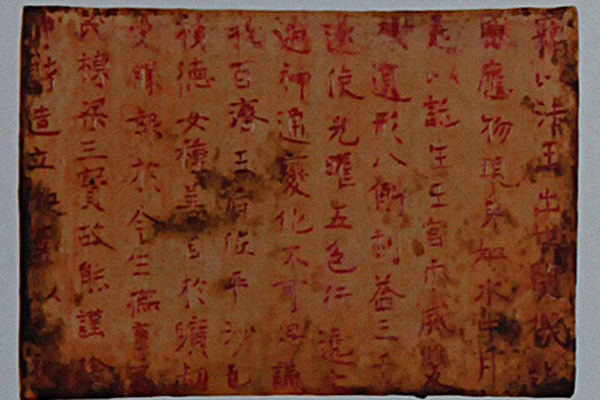 竊以法王出世隨機赴
感應物現身如水中月
是以託生王宮示滅雙
樹遺形八斛利益三千
遂使光曜五色行遶七
遍神通變化不可思議
我百濟王后佐平沙乇
積德女種善因於曠劫
受勝報於今生撫育萬
民棟梁三寶故能謹捨
淨財造立伽藍以己